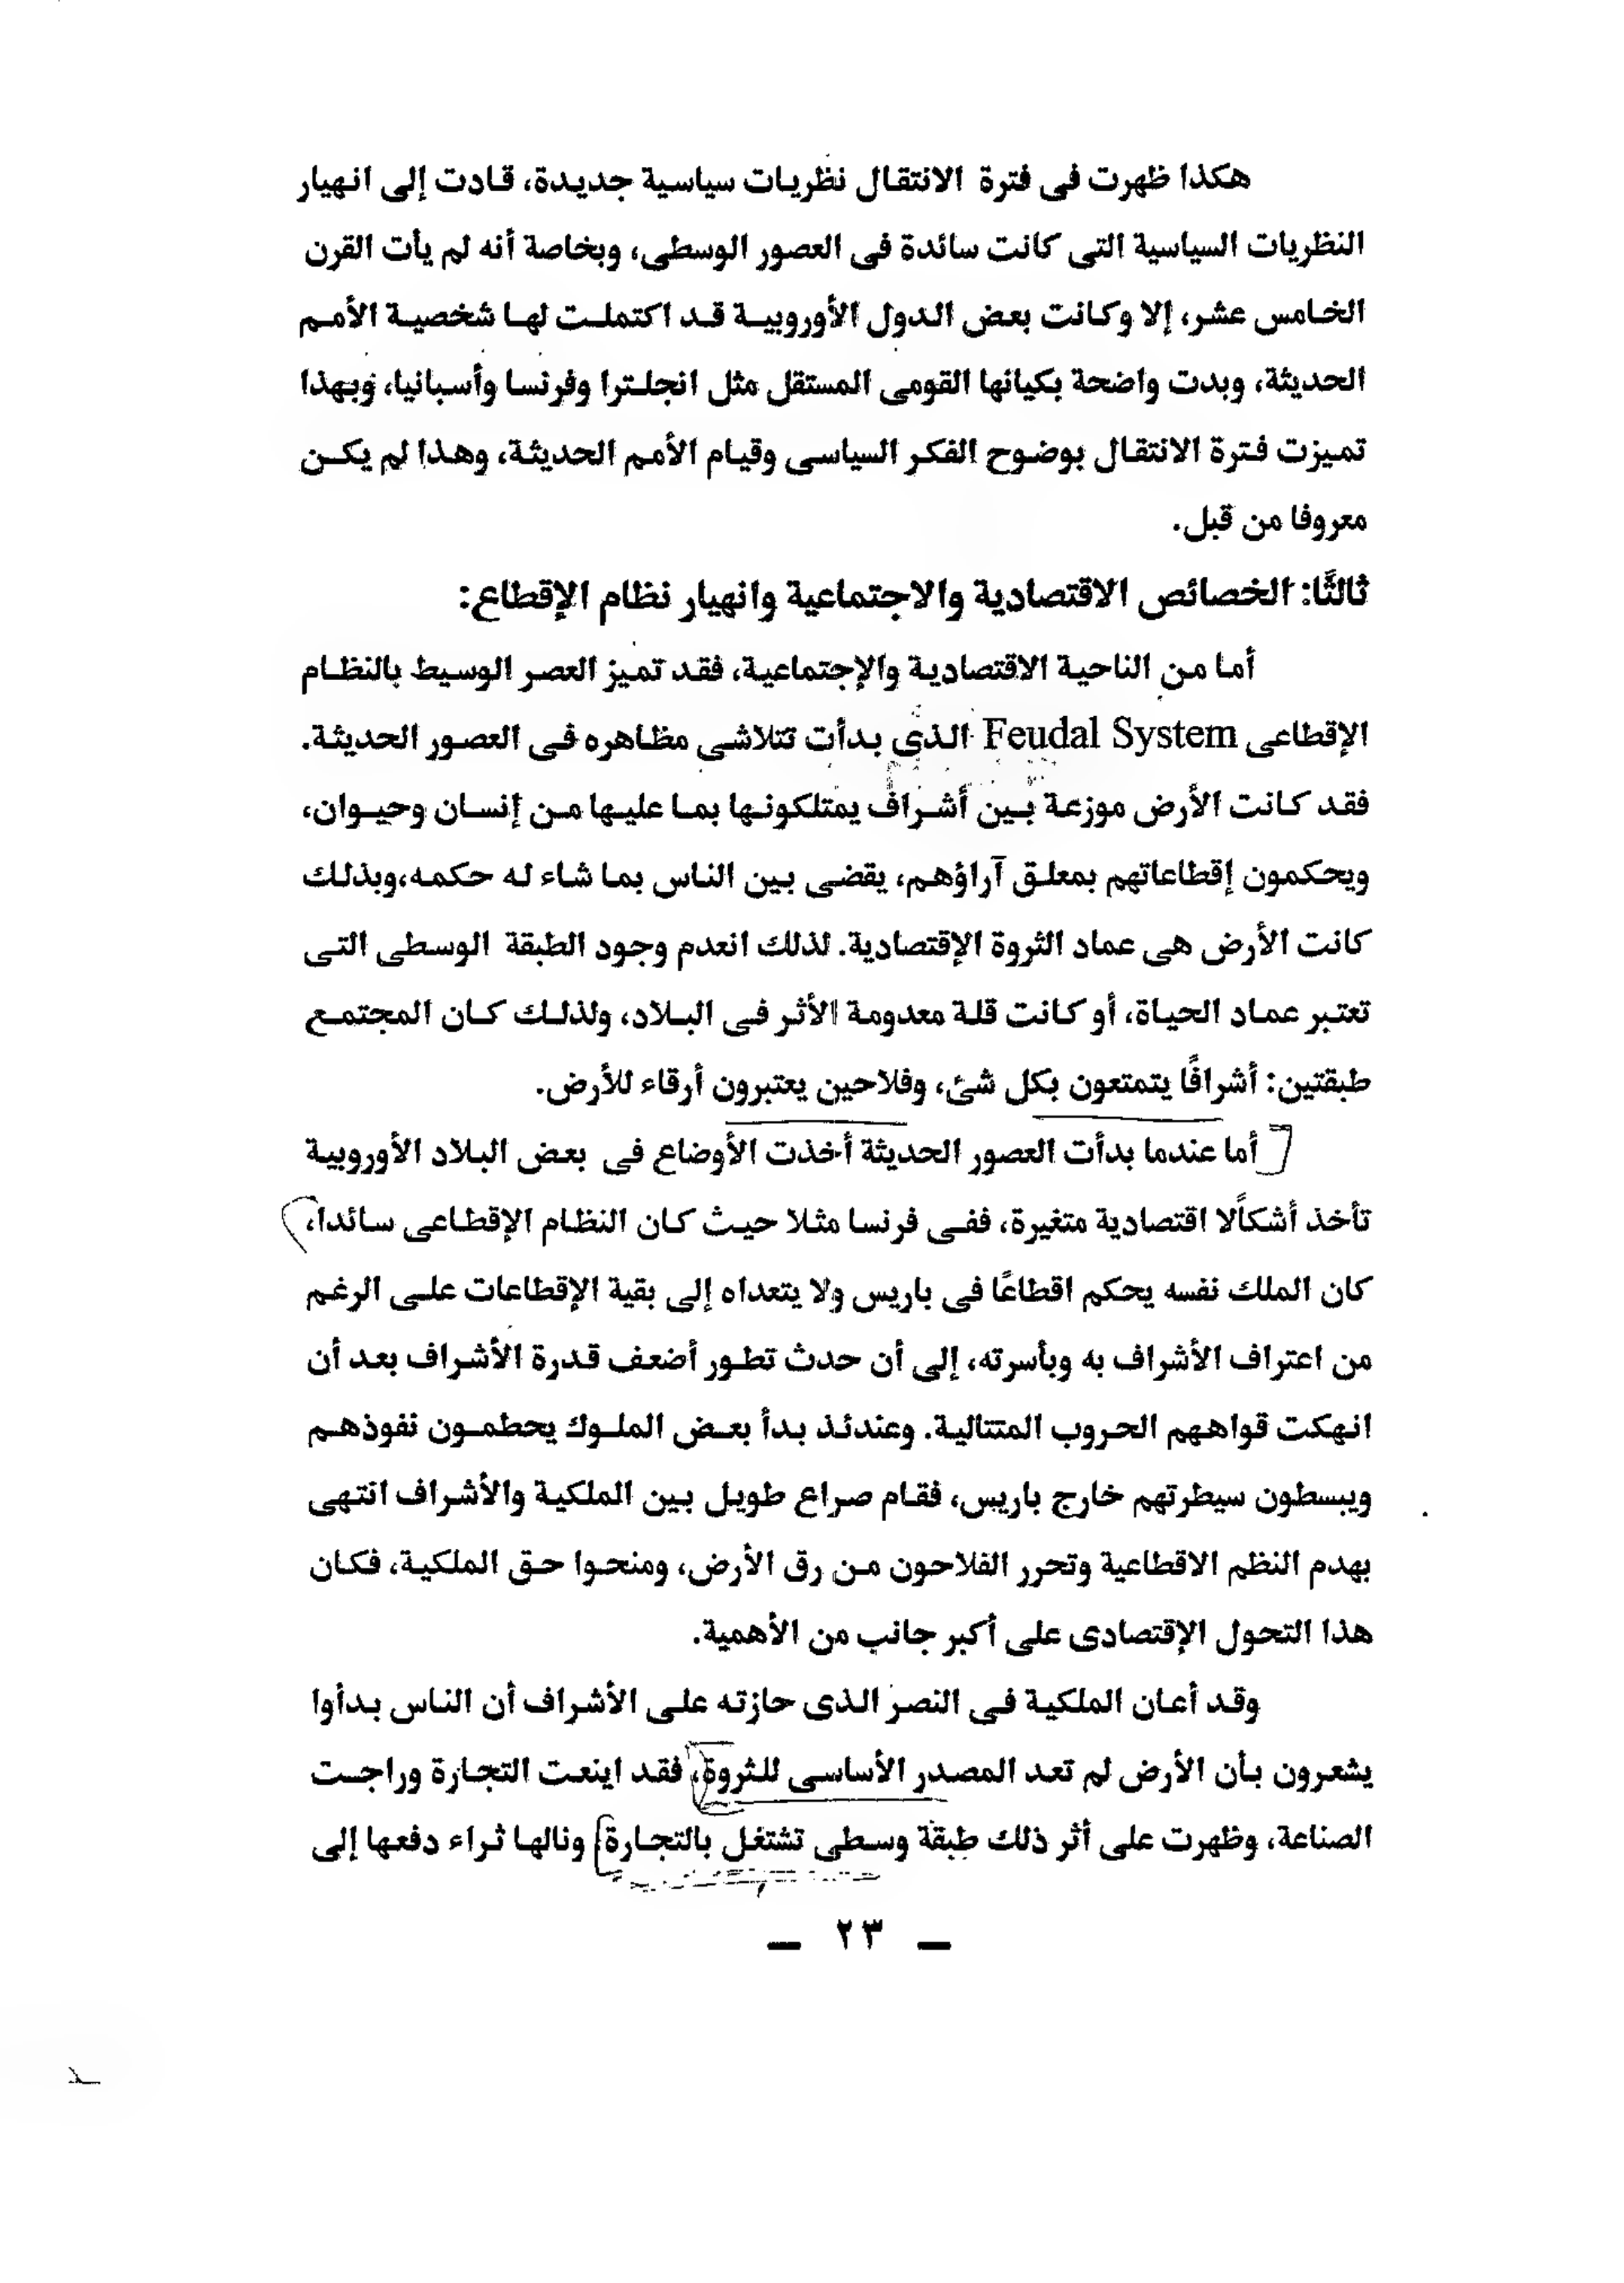 هكذا ظهرت فى فترة الانتقال نظريات سياسية جديدة، قادت إلى انهيار
النظريات السياسية التى كانت سائدة فى العصور الوسطى، وبخاصة أنه لم يأت القرن
الخامس عشر، إلا وكانت بعض الدول الأوروبية قد اكتملت لها شخصية الأمم
الحديثة، وبدت واضحة بكيانها القومى المستقل مثل انجلترا وفرنسا وأسبانيا، وبهذا
تميزت فترة الانتقال بوضوح الفكر السياسى وقيام الأمم الحديثة، وهذا لم يكن
معروفا من قبل.
ثالثًا: الخصائص الاقتصادية والاجتماعية وانهيار نظام الإقطاع:
أما من الناحية الاقتصادية والإجتماعية، فقد تميز العصر الوسيط بالنظام
الإقطاعى Feudal System الذى بدأت تتلاشى مظاهره فى العصور الحديثة.
فقد كانت الأرض موزعة بين أشراف يمتلكونها بما عليها من إنسان وحيوان،
ويحكمون إقطاعاتهم بمعلق آراؤهم، يقضى بين الناس بما شاء له حكمه،وبذلك
كانت الأرض هى عماد الثروة الإقتصادية. لذلك انعدم وجود الطبقة الوسطى التى
تعتبر عماد الحياة، أو كانت قلة معدومة الأثر فى البلاد، ولذلك كان المجتمع
طبقتين: أشرافًا يتمتعون بكل شئ، وفلاحين يعتبرون أرقاء للأرض.
أما عندما بدأت العصور الحديثة أخذت الأوضاع فى بعض البلاد الأوروبية
تأخذ أشكالًا اقتصادية متغيرة، ففى فرنسا مثلا حيث كان النظام الإقطاعى سائدا،
كان الملك نفسه يحكم اقطاعًا فى باريس ولا يتعداه إلى بقية الإقطاعات على الرغم
من اعتراف الأشراف به وبأسرته، إلى أن حدث تطور أضعف قدرة الأشراف بعد أن
انهكت قواهم الحروب المتتالية. وعندئذ بدأ بعض الملوك يحطمون نفوذهم
ويبسطون سيطرتهم خارج باريس، فقام صراع طويل بين الملكية والأشراف انتهى
بهدم النظم الاقطاعية وتحرر الفلاحون من رق الأرض، ومنحوا حق الملكية، فكان
هذا التحول الإقتصادى على أكبر جانب من الأهمية.
وقد أعان الملكية فى النصر الذى حازته على الأشراف أن الناس بدأوا
يشعرون بأن الأرض لم تعد المصدر الأساسى للثروة، فقد اينعت التجارة وراجت
الصناعة، وظهرت على أثر ذلك طبقة وسطى تشتغل بالتجارة ونالها ثراء دفعها إلى
— ٢٣ —